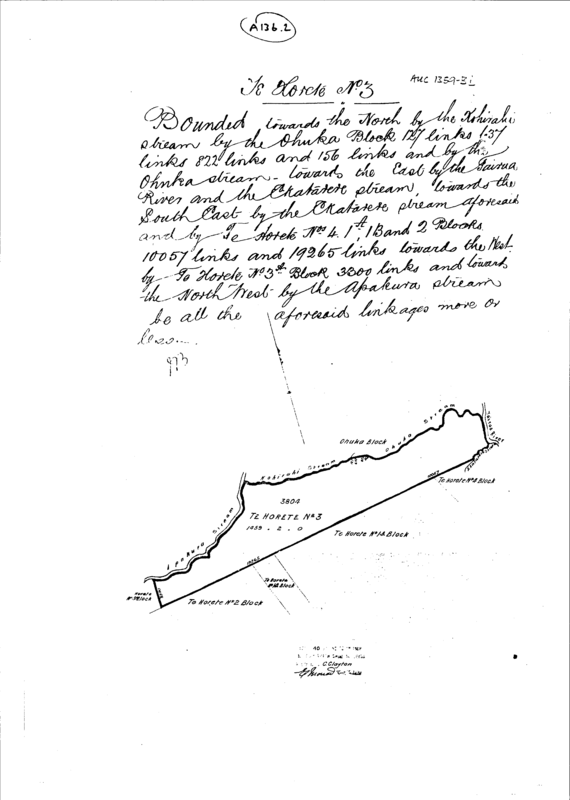 A136.2
Te Horete No 3
AUC 1359-3i
Bounded towards the North by the Kohiraki
stream by the Ohuka Block 127 links 137
links 822 links and 156 links and by the
Ohuka stream - towards the East by the Tairua
River and the stream, towards the
South East by the stream aforesaid
and by Te Horete Nos 4. 1A, 1B and 2 Blocks
10057 links and 19265 links towards the West
by Te Horete No 3 Block 3300 links and towards
the North West by the Apakura stream
be all the aforesaid linkages more or
less.
Ohuka Block
Ohuka Stream
Tairua River
Kohiraki Stream
Te Horete No 4 Block
3804
TE HORETE No 3
1499 . 2 . 0
Te Horete No 1A Block
Apakura Stream
19265
Te Horete
No 1B Block
Horete
Block
Te Horete No 2 Block
C Clayton